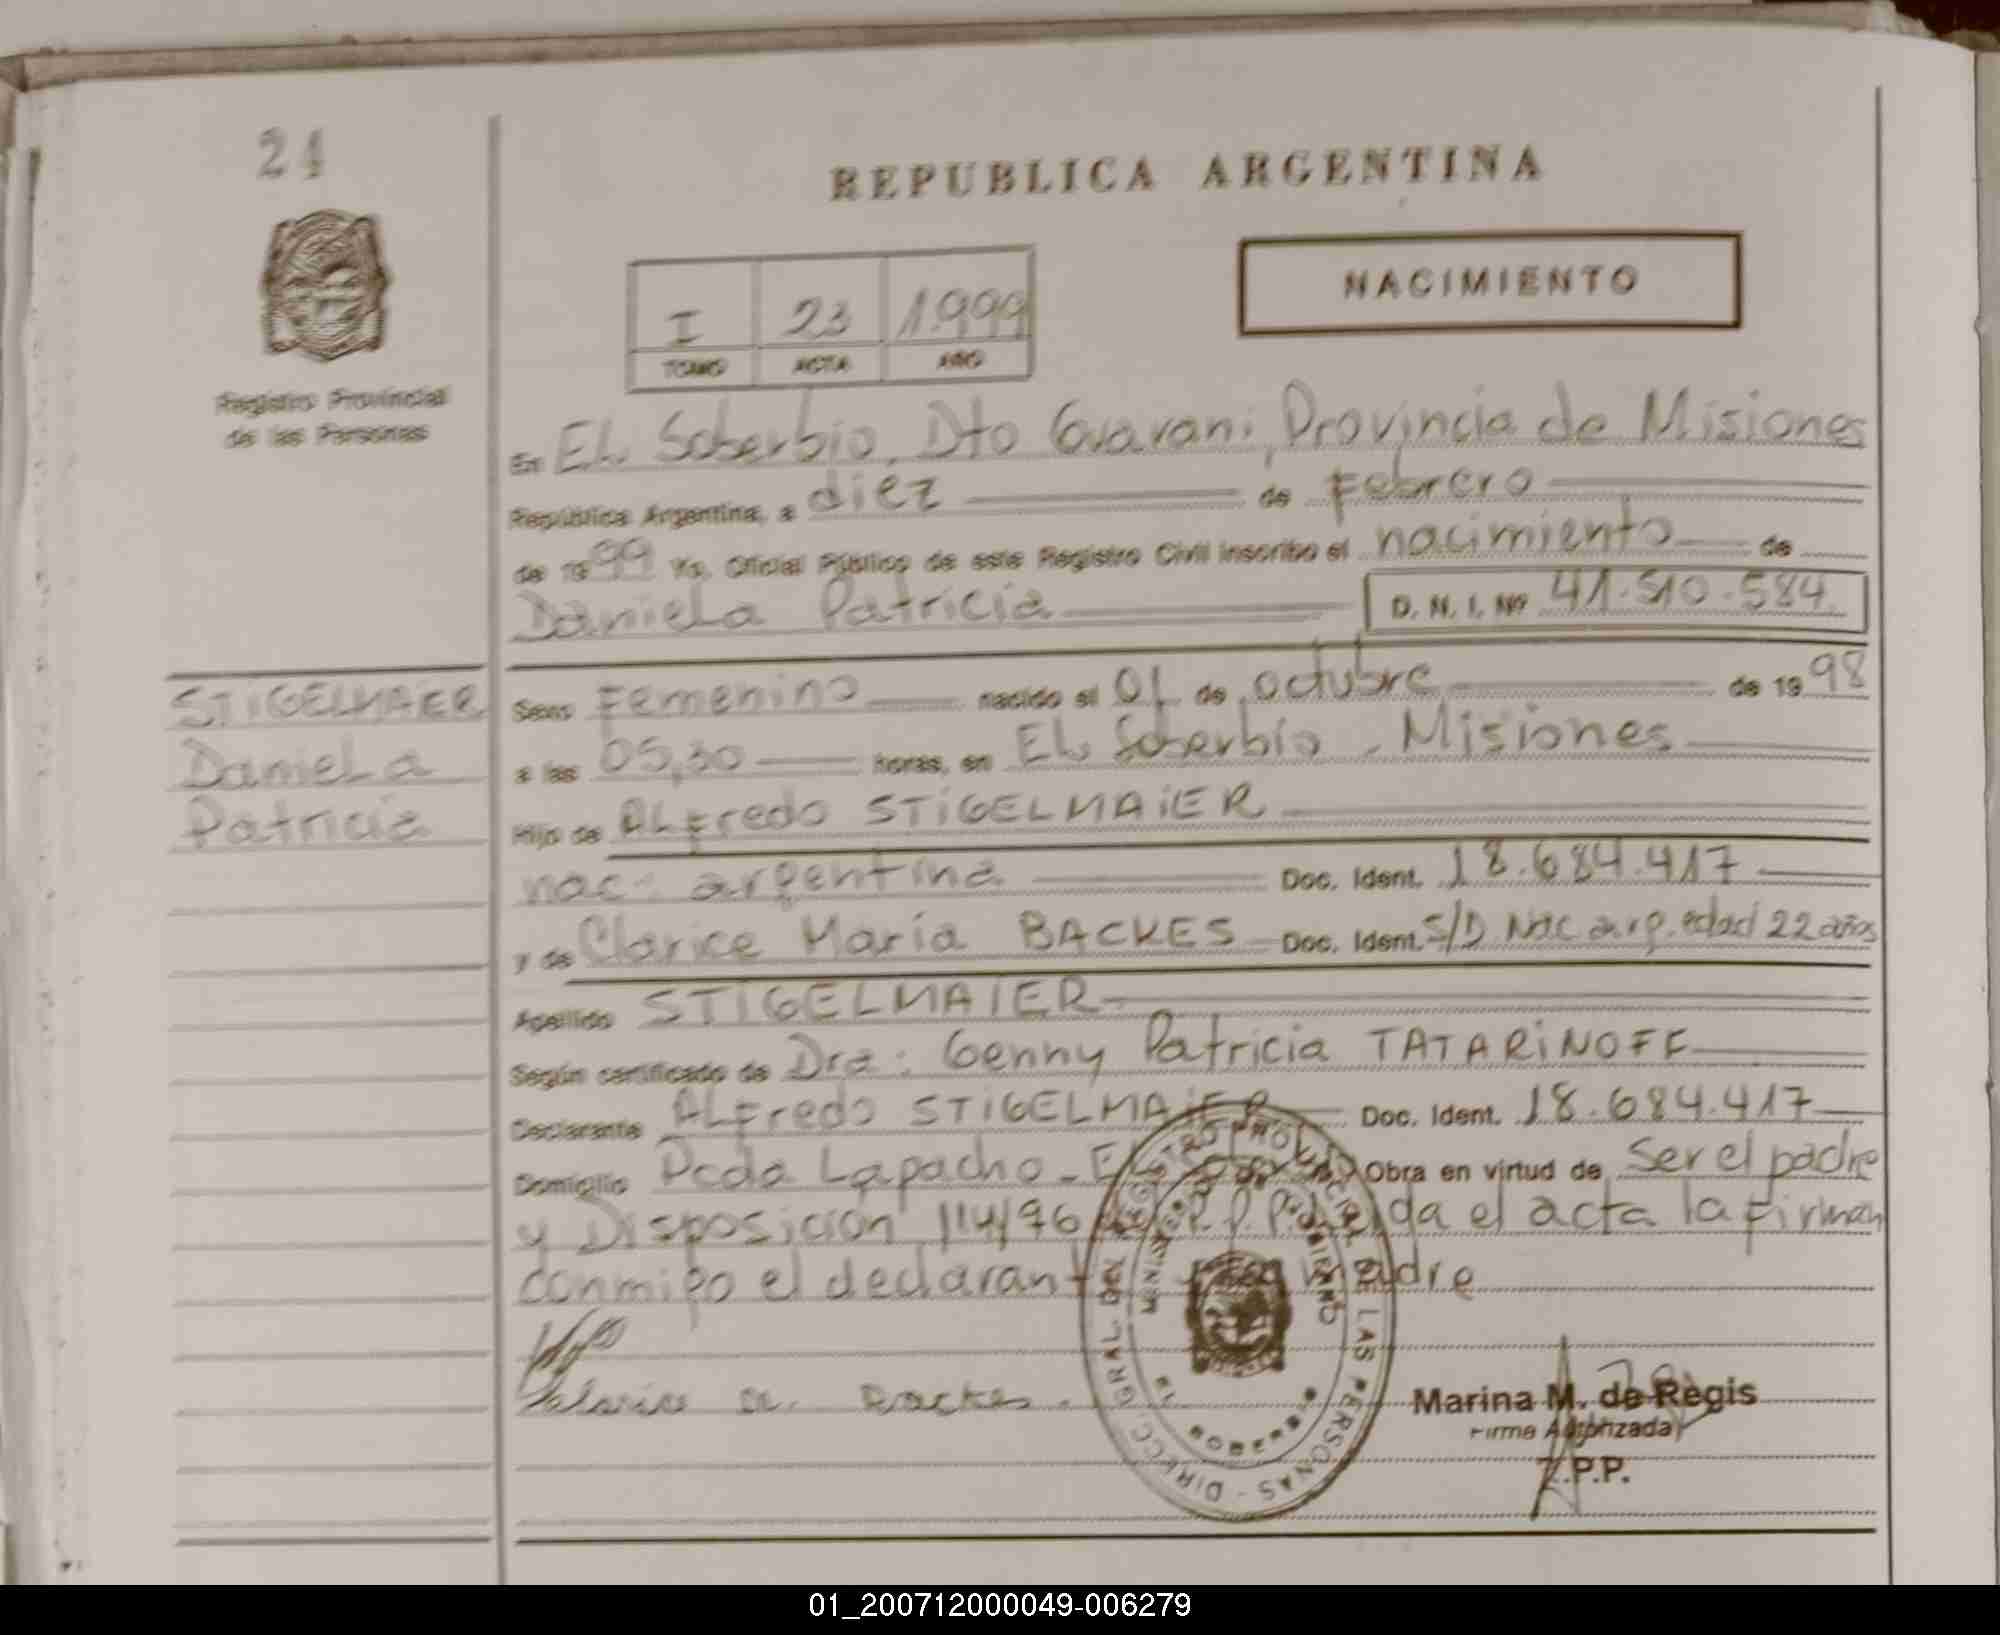 24
REPUBLICA ARGENTINA
NACIMIENTO
I 23 1.999
TOMO ACTA AÑO
Registro Provincial
de las Personas
En EL Soberbio, Dto Guarani, Provincia de Misiones
República Argentina, a diez de Febrero
de 1999 Yo, Oficial Público de este Registro Civil inscribo el nacimiento de
Daniela Patricia D. N. I. Nº 41.510.584
STIGELMAIER
Daniela
Patricia
Sexo Femenino nacido el 01 de octubre de 1998
a las 05,30 horas, en EL Soberbio - Misiones
Hijo de ALFredo STIGELMAIER
nac: argentina Doc. Ident. 18.684.417
y de Clarice María BACKES Doc. Ident. S/D Nac arg. edad 22 años
Apellido STIGELMAIER
Según certificado de Dra: Genny Patricia TATARINOFF
Declarante ALFredo STIGELMAIER Doc. Ident. 18.684.417
Domicilio Pcda Lapacho - EL Obra en virtud de ser el padre
y Disposición 114/96 R.P.P. da el acta la firman
conmigo el declarante madre
Clarice M. Backes.
DIRECC. GRAL. DEL REGISTRO PROVINCIAL DE LAS PERSONAS
MINISTERIO DE GOBIERNO
EL SOBERBIO
Marina M. de Regis
Firma Autorizada
R.P.P.
01_200712000049-006279